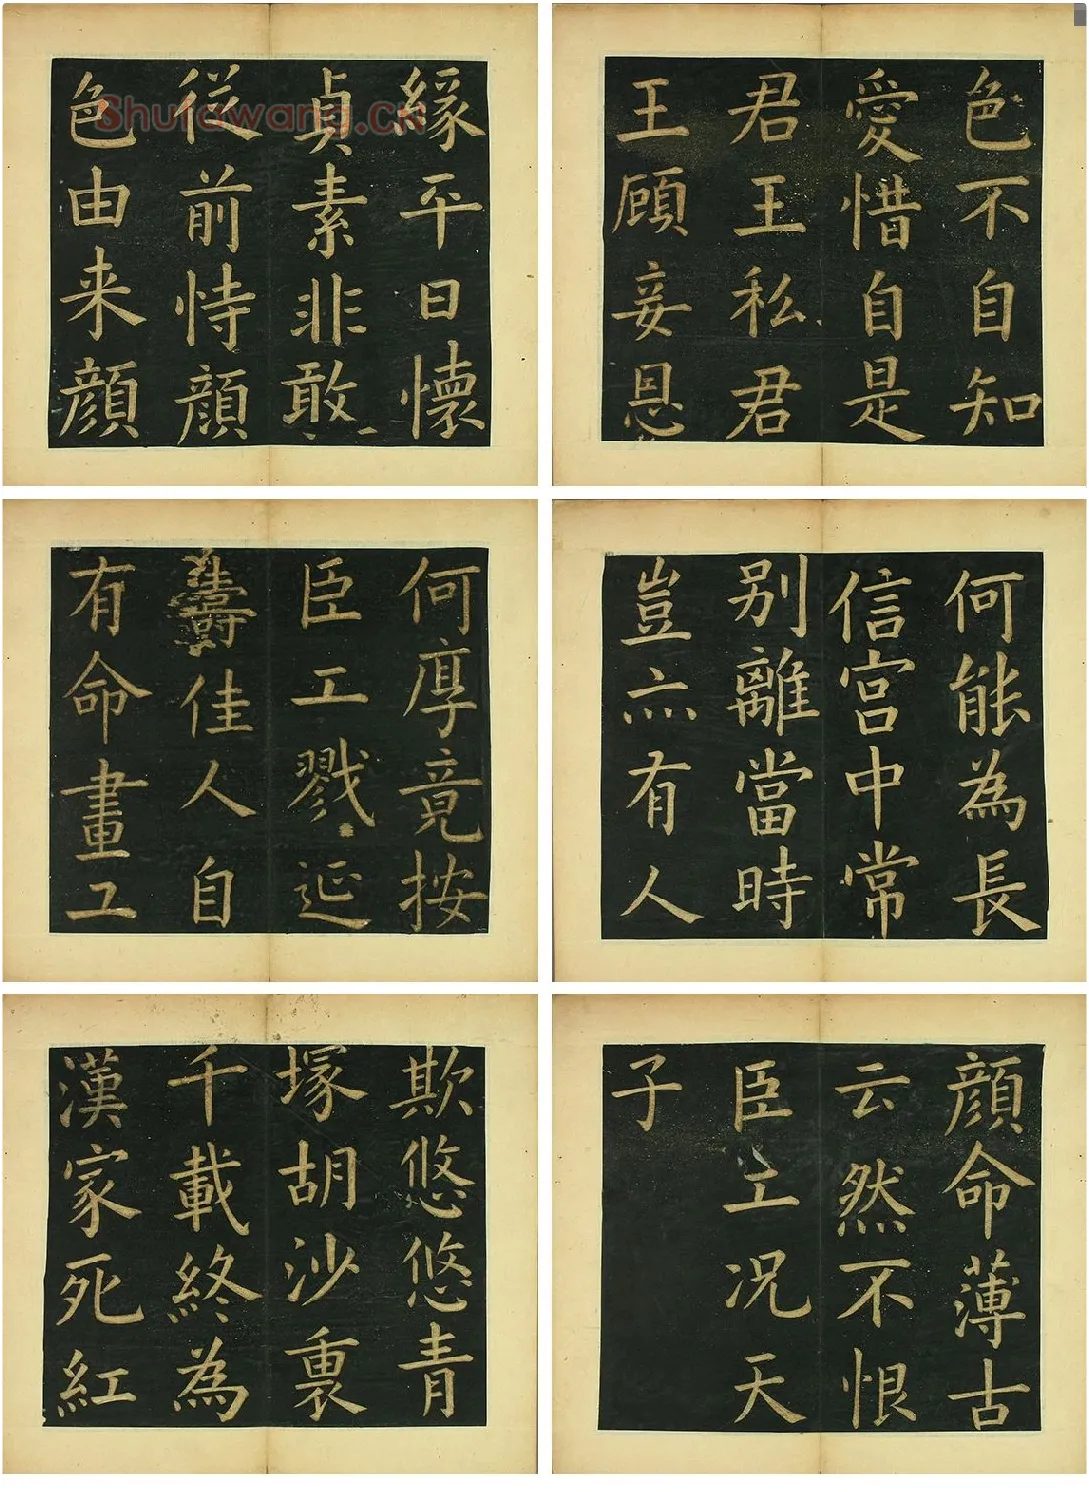 Shufawang.cn
緣平日懷
貞素非敢
從前恃顔
色由来顔
色不自知
愛惜自是
君王私君
王顧妾恩
何厚竟按
臣工戮延
壽佳人自
有命畫工
何能為長
信宫中常
别離當時
豈亦有人
欺悠悠青
塚胡沙裏
千載終為
漢家死紅
顔命薄古
云然不恨
臣工况天
子